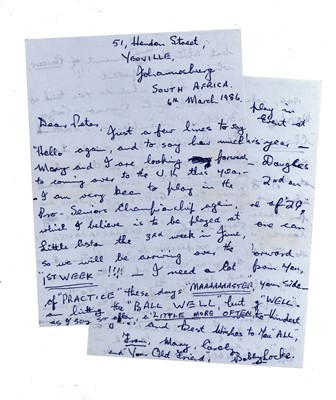 51, Hendon Street,
Yeoville,
Johannesburg
SOUTH AFRICA.
6th March, 1986.
Dear Peter,
Just a few lines to say
"Hello" again, and to say how much
Mary and I are looking forward
to coming over to the U.K. this year.
I am very keen to play in the
Pro-Seniors Championship again,
which I believe is to be played at
Little Aston the 3rd week in June,
so we will be arriving over the
"1ST WEEK" !!!! — I need a lot
of "PRACTICE" these days "MAAAAAASTER,
am hitting the "BALL WELL" but
as I say so often, a "LITTLE MORE OFTEN,"
play in
Event at
his year —
Daughter
2nd
of "29",
one can
forward
from you,
your side —
g WELL"
Kindest
and Best Wishes to You "ALL",
From, Mary, Carolyn
and "Your Old Friend", Bobby Locke.